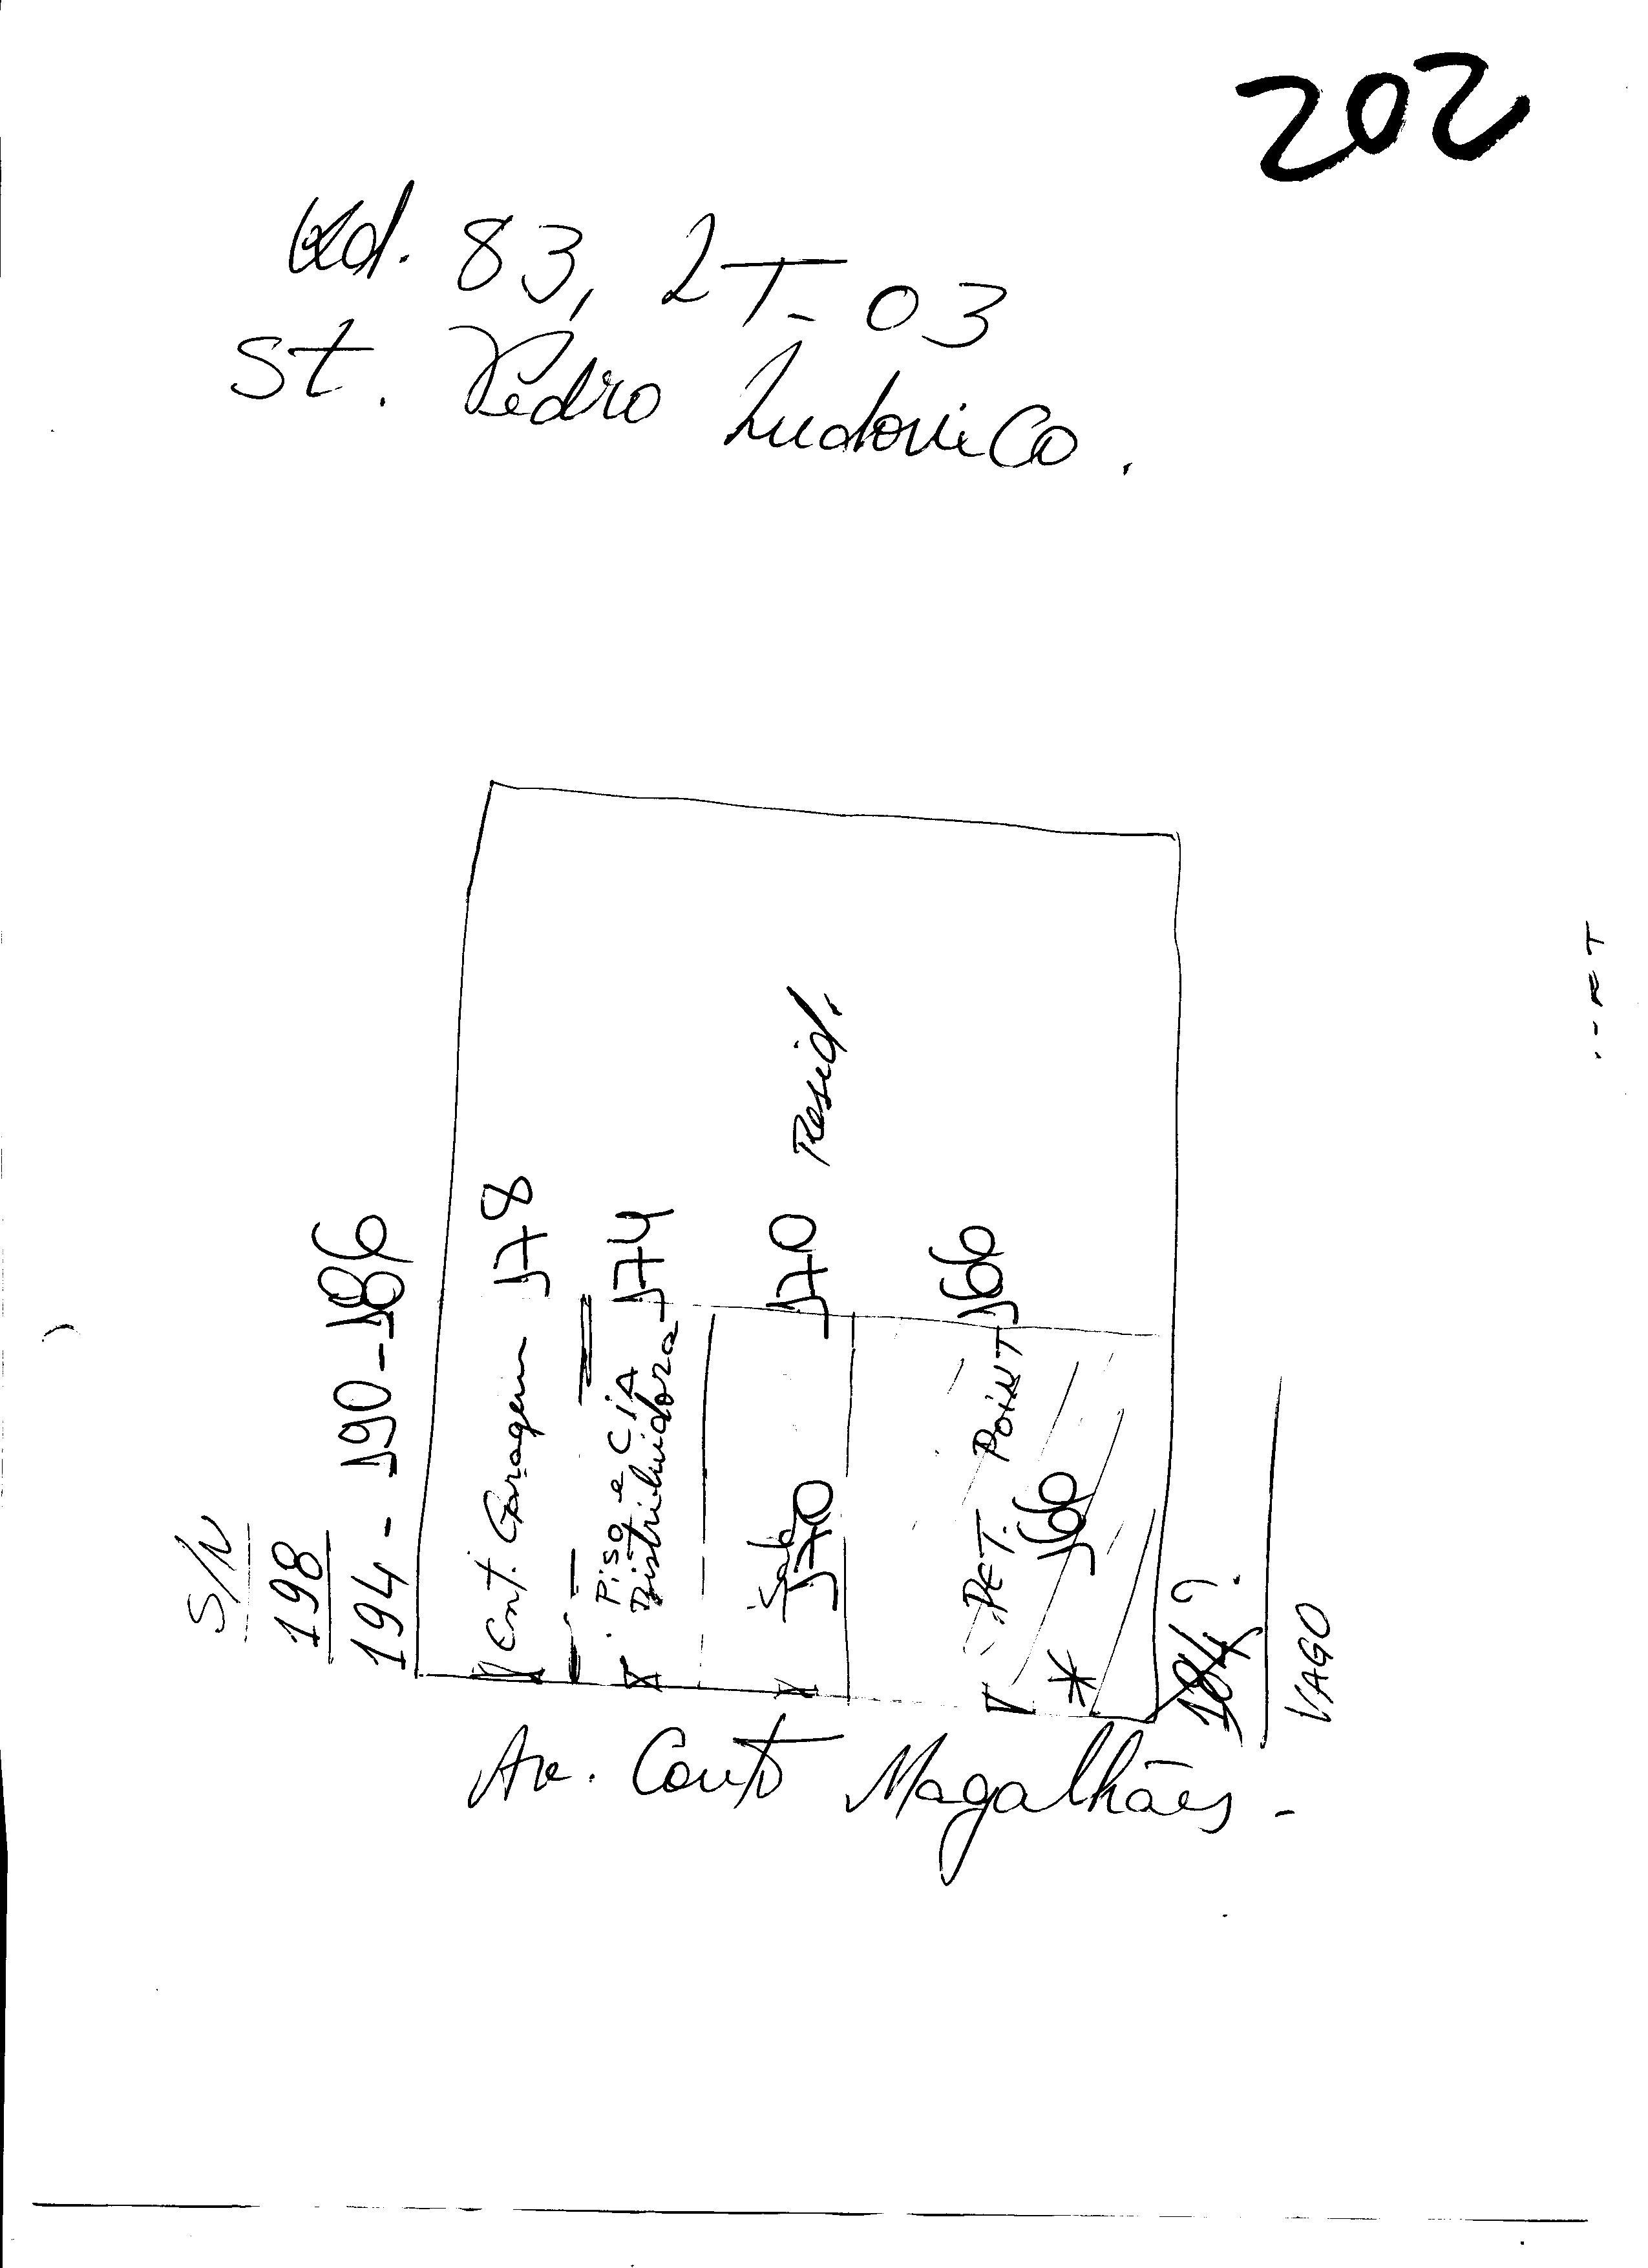 202
Qd. 83, LT- 03
St. Pedro Ludovico.
S/N
198
194 - 190 - 186
Ent. Garagem 178
Piso e CIA
Distribuidora 174
170 Resid.
Sala
170
166
PET. POINT
166
184?.
VAGO
Av. Couto Magalhães -